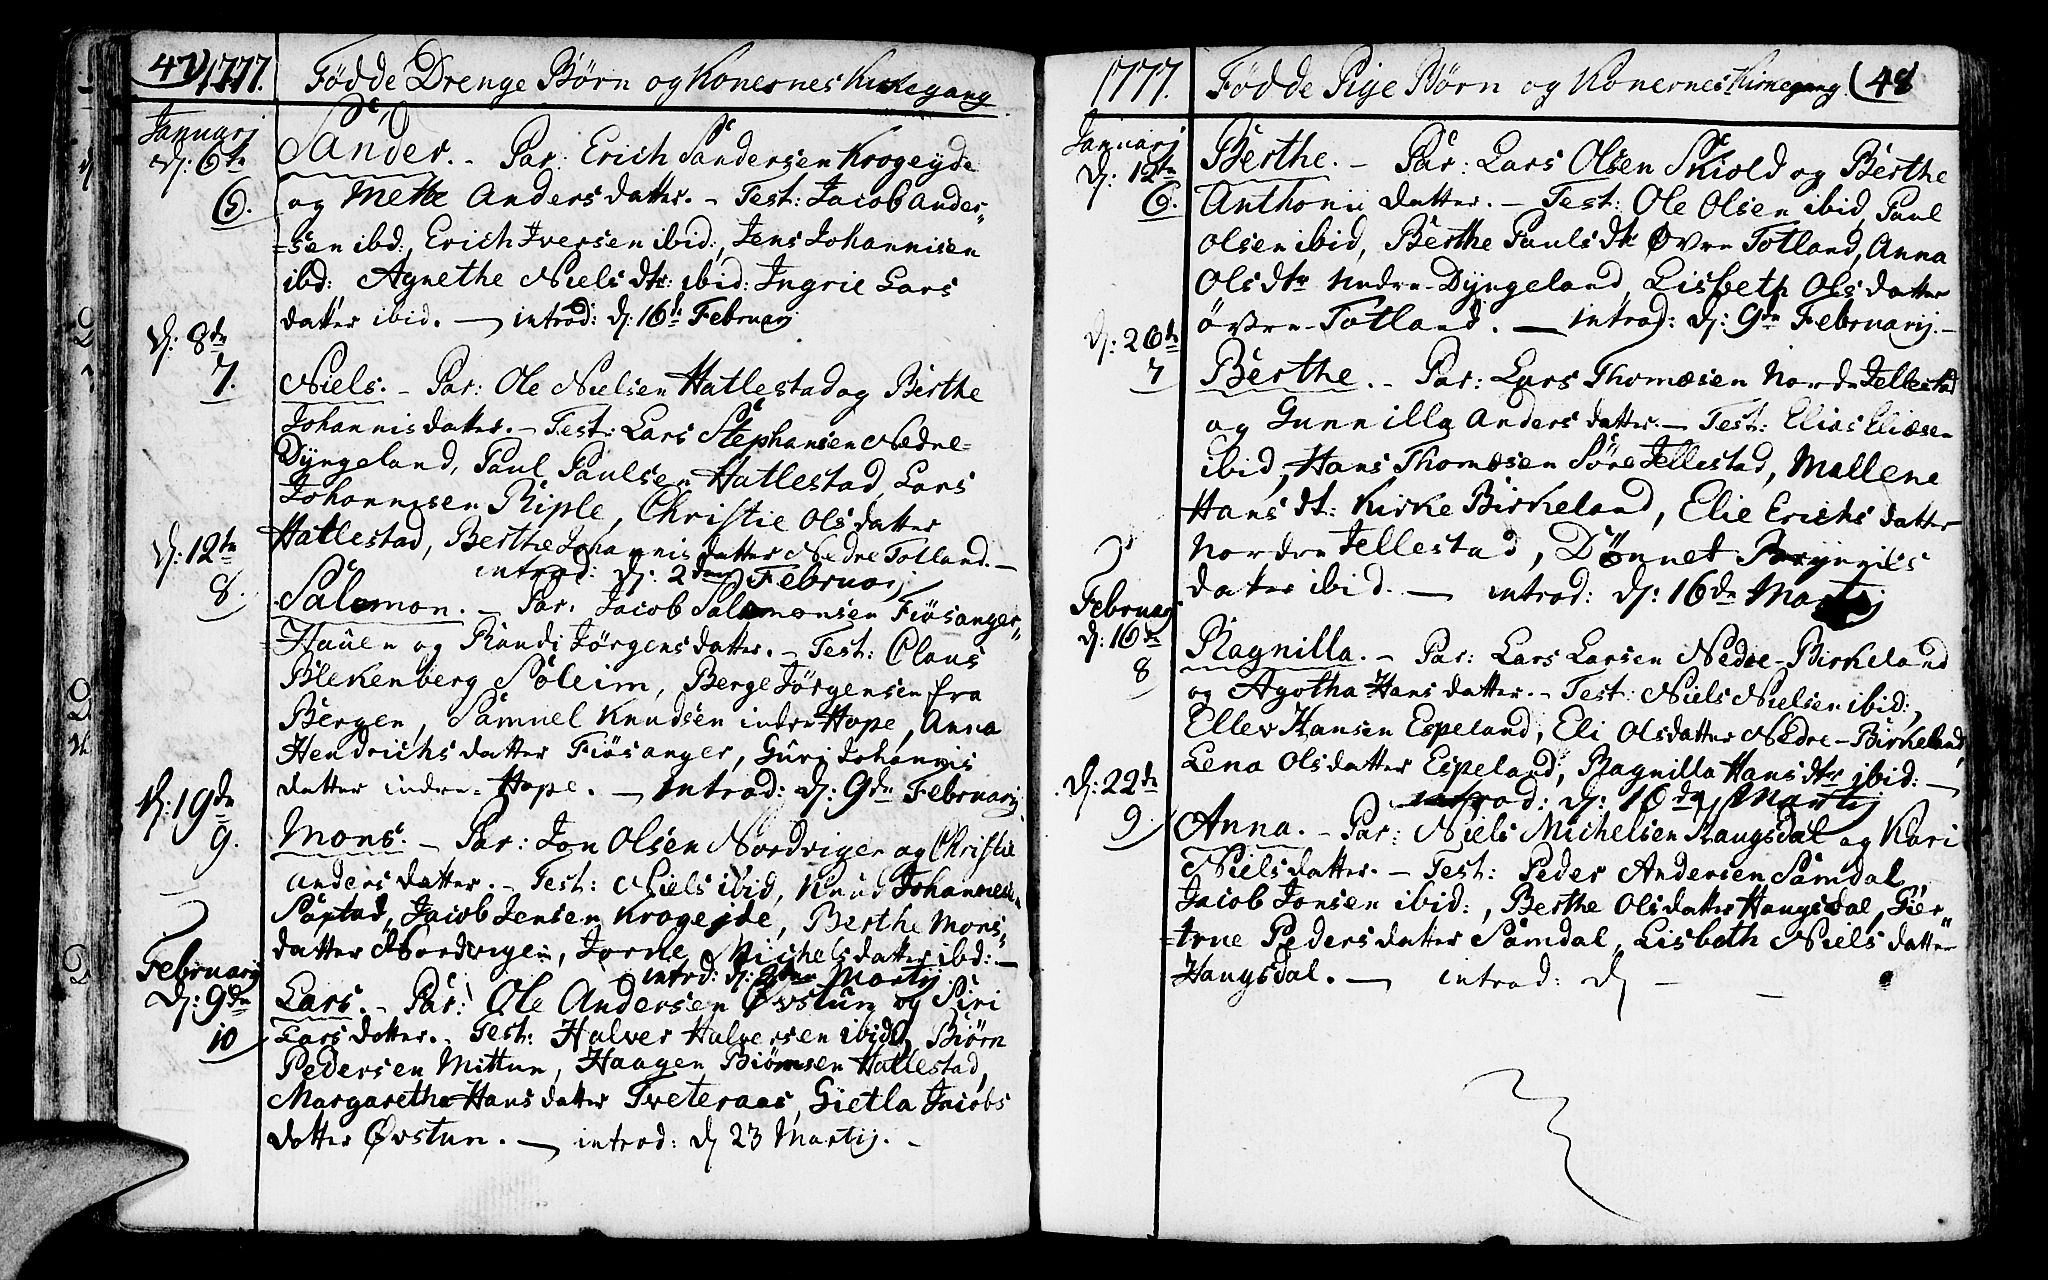 47) 1777. Födde Drenge Börn og Konernes Kirkegang
Januarj
d: 6te Sander. - Par: Erich Sandersen Krogeyde
6. og Mette Andersdatter. - Test: Jacob Ander„
=sen ibd:, Erich Iversen ibid:, Jens Johannisen
ibd: Agnethe Niels dtr: ibid: Ingrie Lars
datter ibid. - introd: d: 16de Februarj
d: 8de
7. Niels. - Par: Ole Nielsen Hatlestad og Berthe
Johannisdatter. - Test: Lars Stephansen Nedre=
Dÿngeland, Paul Paulsen Hatlestad, Lars
Johannisen Riple, Christie Olsdatter
d: 12te Hatlestad, Berthe Johannisdatter Nedre Totland. -
introd: d: 2den Februarj
8. Salomon. - Par. Jacob Salomonsen Fiösanger„
=Hauen og Randi Jörgensdatter. - Test: Claus
Blekenberg Söleim, Berge Jörgensen fra
Bergen, Samuel Knudsen indre Hope, Anna
Hendrichsdatter Fiösanger, Guri Johannis
datter indre=Hope. - introd: d: 9de Februarij
d: 19de
9. Mons. - Par: Jon Olsen Nordvigen og Christie
Andersdatter. - Test: Niels ibid, Knud Johannesen
Söxstad, Jacob Jensen Krogeyde, Berthe Mons„
datter Nordvigen, Michelsdatter ibd: -
introd: d: Martij
Februarij
d: 9de Lars. - Par: Ole Andersen Øvstun og Siri
10 Larsdatter. - Test: Halver Halversen ibid, Biörn
Pedersen Mittun, Haagen Biörnsen Hatlestad,
Margarethe Hansdatter Tveteraas, Gietla Jacobs
datter Øvstun. - introd: d 23 Martij. -
1777. Födde Pige Börn og Konernes Kirkegang. (48
Januarj
d: 12te Berthe. - Par: Lars Olsen Skiold og Berthe
6. Anthonii datter. - Test: Ole Olsen ibid, Paul
Olsen ibid, Berthe Pauls dtr Øvre Totland, Anna
Ols dtr Nedre-Dÿngeland, Lisbeth Olsdatter
övre-Totland. - introd: d: 9de Februarij. -
d: 26de
7 Berthe. - Par: Lars Thomæsen Nordre Jellestad
og Gunnilla Andersdatter. - Test: Elias Eliæsen
ibid, Hans Thomæsen Söre Jellestad, Mallene
Hans dt: Kirke Birkeland, Elie Erichsdatter
Nordre Jellestad, Dönnet
datter ibid. - introd: d: 16de Martij
Februarj
d: 16de
8 Ragnilla. - Par: Lars Larsen Nedre-Birkeland
og Agotha Hansdatter. - Test: Niels Nielsen ibid:,
Ellev Hansen Espeland, Eli Olsdatter Nedre-Birkeland,
Lena Olsdatter Espeland, Ragnilla Hans dtr ibid: -
introd: d: 16de Martij
d: 22de
9. Anna. - Par: Niels Michelsen Haugsdal og Kari
Nielsdatter. - Test: Peder Andersen Samdal
Jacob Jonsen ibid:, Berthe Olsdatter Haugsdal, Gier„
=true Pedersdatter Samdal, Lisbeth Nielsdatter
Haugsdal. - introd: d - -